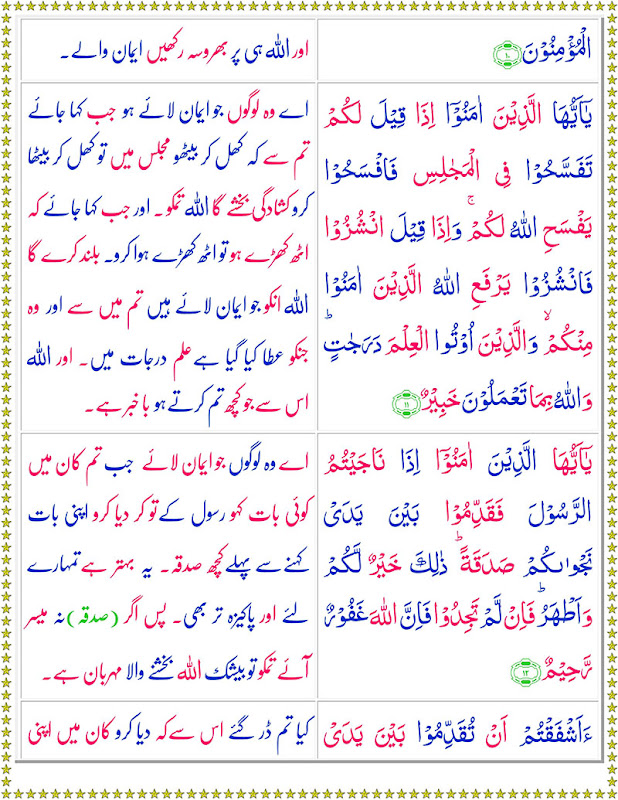 الْمُؤْمِنُوْنَ ۝۱۰
اور اللہ ہی پر بھروسہ رکھیں ایمان والے۔
يٰۤاَيُّهَا الَّذِيْنَ اٰمَنُوْۤا اِذَا قِيْلَ لَكُمْ
تَفَسَّحُوْا فِي الْمَجٰلِسِ فَافْسَحُوْا
يَفْسَحِ اللّٰهُ لَكُمْ ۚ وَاِذَا قِيْلَ انْشُزُوْا
فَانْشُزُوْا يَرْفَعِ اللّٰهُ الَّذِيْنَ اٰمَنُوْا
مِنْكُمْ ۙ وَالَّذِيْنَ اُوْتُوا الْعِلْمَ دَرَجٰتٍ ؕ
وَاللّٰهُ بِمَا تَعْمَلُوْنَ خَبِيْرٌ ۝۱۱
اے وہ لوگوں جو ایمان لائے ہو جب کہا جائے
تم سے کہ کھل کر بیٹھو مجلس میں تو کھل کر بیٹھا
کرو کشادگی بخشے گا اللہ تمکو۔ اور جب کہا جائے کہ
اٹھ کھڑے ہو تو اٹھ کھڑے ہوا کرو۔ بلند کرے گا
اللہ انکو جو ایمان لائے ہیں تم میں سے اور وہ
جنکو عطا کیا گیا ہے علم درجات میں۔ اور اللہ
اس سے جو کچھ تم کرتے ہو با خبر ہے۔
يٰۤاَيُّهَا الَّذِيْنَ اٰمَنُوْۤا اِذَا نَاجَيْتُمُ
الرَّسُوْلَ فَقَدِّمُوْا بَيْنَ يَدَيْ
نَجْوٰىكُمْ صَدَقَةً ؕ ذٰلِكَ خَيْرٌ لَّكُمْ
وَاَطْهَرُ ؕ فَاِنْ لَّمْ تَجِدُوْا فَاِنَّ اللّٰهَ غَفُوْرٌ
رَّحِيْمٌ ۝۱۲
اے وہ لوگوں جو ایمان لائے جب تم کان میں
کوئی بات کہو رسول کے تو کر دیا کرو اپنی بات
کہنے سے پہلے کچھ صدقہ۔ یہ بہتر ہے تمہارے
لئے اور پاکیزہ تر بھی۔ پس اگر (صدقہ) نہ میسر
آئے تمکو تو بیشک اللہ بخشنے والا مہربان ہے۔
ءَاَشْفَقْتُمْ اَنْ تُقَدِّمُوْا بَيْنَ يَدَيْ
کیا تم ڈر گئے اس سے کہ دیا کرو کان میں اپنی